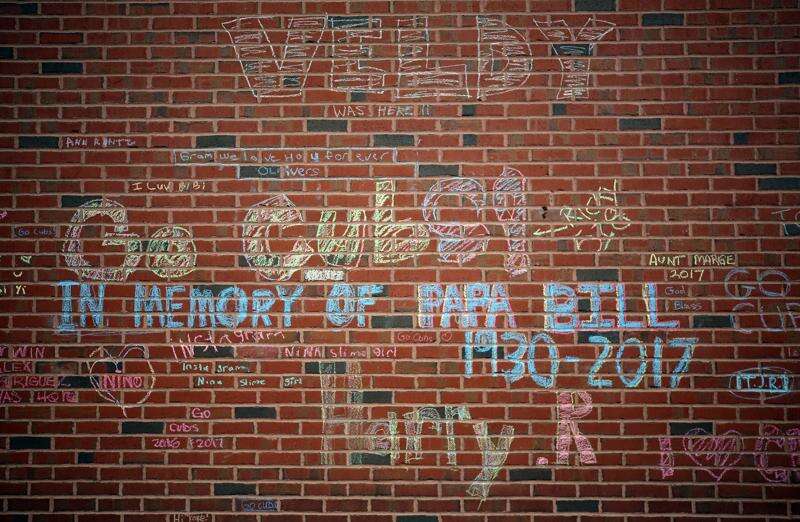 VELDY
WAS HERE !!
ANN KUNTZ
Gram we love you forever
Olivers
I Luv BiBi
Go Cubs!
Go Cubs
AUNT MARGE
2017
God
Bless
GO
IN MEMORY OF PAPA BILL
1930-2017
Instagram
Go Cubs
NiNA Slime girl
WIN
ALEX
NINO
Insta gram:
Nina Slime girl
RIGUEL
WAS HERE
ITJRJ
Go
CUBS
2016 & 2017
Harry.R
I